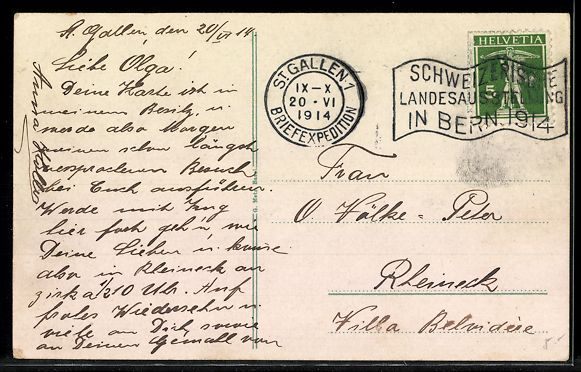 St. Gallen, den 20/VI 14
Liebe Olga!
Deine Karte ist in
meinem Besitz, u.
werde also Morgen
meinen schon längst
versprochenen Besuch
bei Euch ausführen.
Werde mit Zug
hier fort geh'n, wie
Deine Lieben u. komme
also in Rheineck an
zirka 1/2 10 Uhr. Auf
frohes Wiedersehn u.
viele an Dich sowie
an Deinen Gemahl von
Anna
ST. GALLEN 1
IX-X
20·VI
1914
BRIEFEXPEDITION
SCHWEIZERISCHE
LANDESAUSSTELLUNG
IN BERN. 1914
HELVETIA
5
Frau
O Völke-Peter
Rheineck
Villa Belvédère